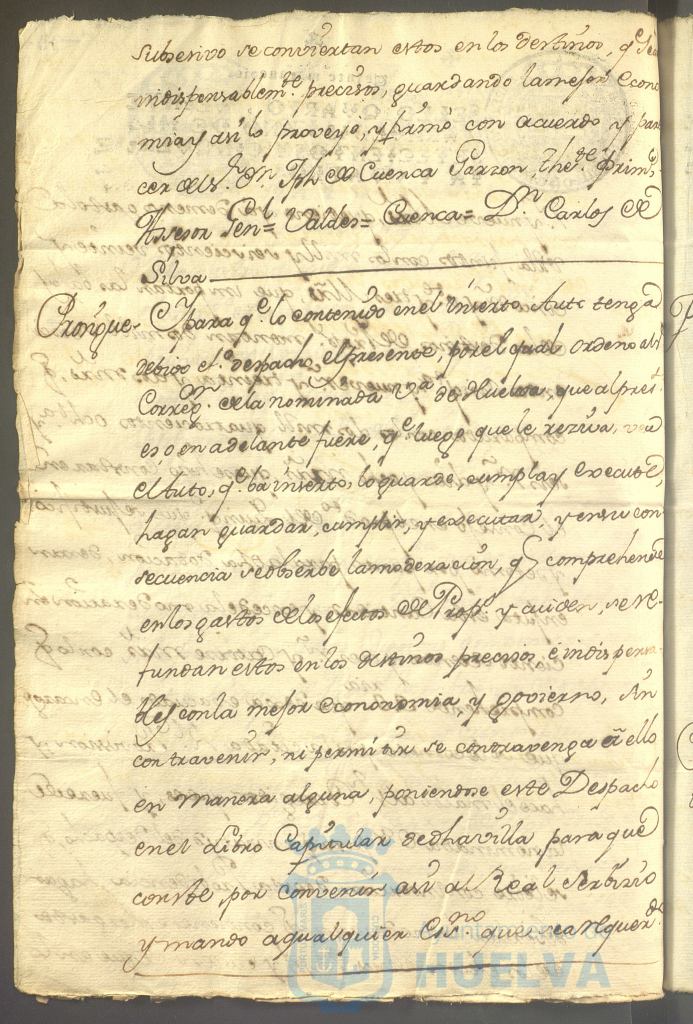 subsesivo se conviertan estos en los destinos, q.e sean
indispensablem.te precisos, guardando la mejor econo
mia y asi lo proveyó, y firmó con acuerdo y pare
cer del S.r D.n Jph de Cuenca Garzon, the.te Prim.o
Asesor Gen.l = Valdes = Cuenca = D.n Carlos de
Silva
Prosigue - Y para q.e lo contenido en el inserto Auto tenga
debido ef.to despacho el presente, por el qual ordeno al S.r
Correg.r de la nominada V.a de Huelva, que al pres.te
es, o en adelante fuere, q.e luego que le reziva, vea
el Auto, q.e ba inserto, lo guarde, cumpla y execute,
hagan guardar, cumplir, y executar, y en su con
secuencia se obserbe la moderacion, q.e comprehende
en los gastos de los efectos de Prop.s y cuiden, se re
fundan estos en los destinos precisos é indispensa
bles con la mejor econonomia y govierno, sin
contravenir, ni permitir se contravenga á ello
en manera alguna, poniendose este Despacho
en el Libro Capitular de dha villa para que
conste, por convenir asi al Real Serbizio
y mando a qualquier Ess.no que sea requerd.o
HUELVA